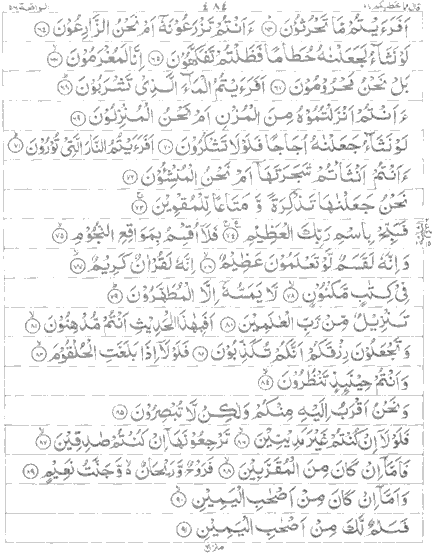 قال فما خطبكم ٢٧ الواقعة ٥٦
اَفَرَءَيْتُمْ مَّا تَحْرُثُوْنَ ﴿٦٣﴾ ءَاَنْتُمْ تَزْرَعُوْنَهٗٓ اَمْ نَحْنُ الزّٰرِعُوْنَ ﴿٦٤﴾
لَوْ نَشَآءُ لَجَعَلْنٰهُ حُطَامًا فَظَلْتُمْ تَفَكَّهُوْنَ ﴿٦٥﴾ اِنَّا لَمُغْرَمُوْنَ ﴿٦٦﴾
بَلْ نَحْنُ مَحْرُوْمُوْنَ ﴿٦٧﴾ اَفَرَءَيْتُمُ الْمَآءَ الَّذِيْ تَشْرَبُوْنَ ﴿٦٨﴾
ءَاَنْتُمْ اَنْزَلْتُمُوْهُ مِنَ الْمُزْنِ اَمْ نَحْنُ الْمُنْزِلُوْنَ ﴿٦٩﴾
لَوْ نَشَآءُ جَعَلْنٰهُ اُجَاجًا فَلَوْلَا تَشْكُرُوْنَ ﴿٧٠﴾ اَفَرَءَيْتُمُ النَّارَ الَّتِيْ تُوْرُوْنَ ﴿٧١﴾
ءَاَنْتُمْ اَنْشَاْتُمْ شَجَرَتَهَآ اَمْ نَحْنُ الْمُنْشِـُٔوْنَ ﴿٧٢﴾
نَحْنُ جَعَلْنٰهَا تَذْكِرَةً وَّ مَتَاعًا لِّلْمُقْوِيْنَ ﴿٧٣﴾
فَسَبِّحْ بِاسْمِ رَبِّكَ الْعَظِيْمِ ﴿٧٤﴾ فَلَآ اُقْسِمُ بِمَوٰقِعِ النُّجُوْمِ ﴿٧٥﴾
وَ اِنَّهٗ لَقَسَمٌ لَّوْ تَعْلَمُوْنَ عَظِيْمٌ ﴿٧٦﴾ اِنَّهٗ لَقُرْاٰنٌ كَرِيْمٌ ﴿٧٧﴾
فِيْ كِتٰبٍ مَّكْنُوْنٍ ﴿٧٨﴾ لَّا يَمَسُّهٗٓ اِلَّا الْمُطَهَّرُوْنَ ﴿٧٩﴾
تَنْزِيْلٌ مِّنْ رَّبِّ الْعٰلَمِيْنَ ﴿٨٠﴾ اَفَبِهٰذَا الْحَدِيْثِ اَنْتُمْ مُّدْهِنُوْنَ ﴿٨١﴾
وَ تَجْعَلُوْنَ رِزْقَكُمْ اَنَّكُمْ تُكَذِّبُوْنَ ﴿٨٢﴾ فَلَوْلَآ اِذَا بَلَغَتِ الْحُلْقُوْمَ ﴿٨٣﴾
وَ اَنْتُمْ حِيْنَئِذٍ تَنْظُرُوْنَ ﴿٨٤﴾
وَ نَحْنُ اَقْرَبُ اِلَيْهِ مِنْكُمْ وَ لٰكِنْ لَّا تُبْصِرُوْنَ ﴿٨٥﴾
فَلَوْلَآ اِنْ كُنْتُمْ غَيْرَ مَدِيْنِيْنَ ﴿٨٦﴾ تَرْجِعُوْنَهَآ اِنْ كُنْتُمْ صٰدِقِيْنَ ﴿٨٧﴾
فَاَمَّآ اِنْ كَانَ مِنَ الْمُقَرَّبِيْنَ ﴿٨٨﴾ فَرَوْحٌ وَّ رَيْحَانٌ وَّ جَنَّتُ نَعِيْمٍ ﴿٨٩﴾
وَ اَمَّآ اِنْ كَانَ مِنْ اَصْحٰبِ الْيَمِيْنِ ﴿٩٠﴾
فَسَلٰمٌ لَّكَ مِنْ اَصْحٰبِ الْيَمِيْنِ ﴿٩١﴾